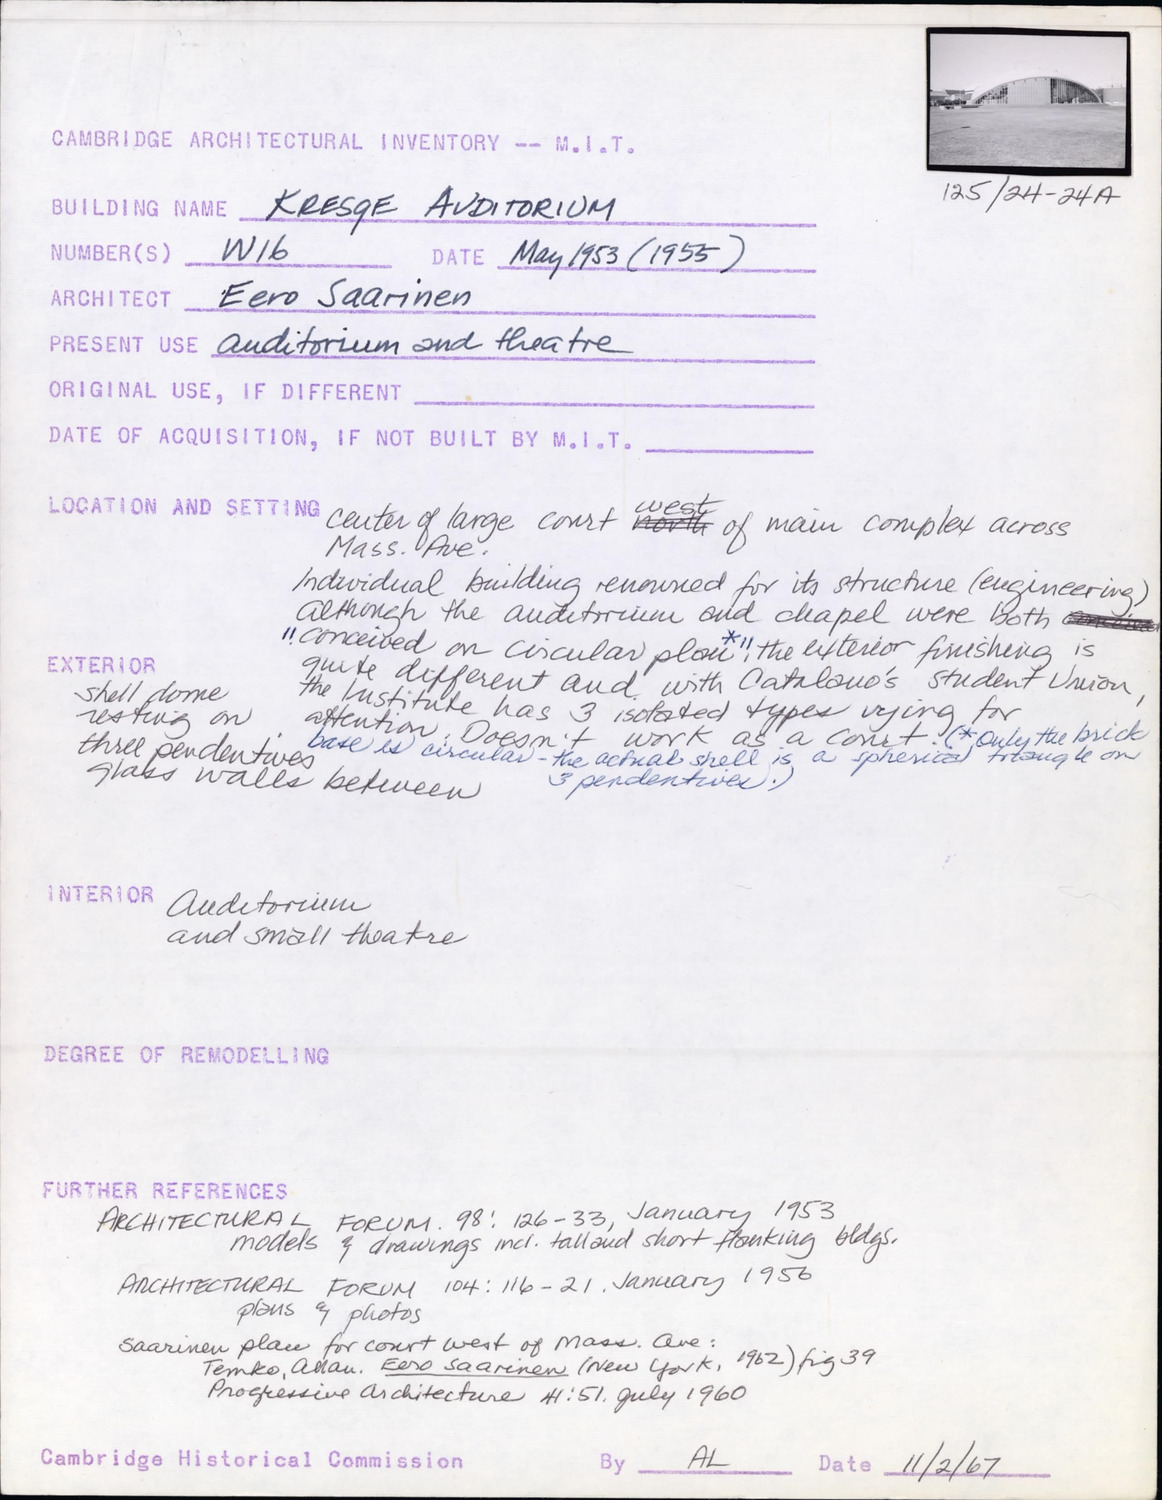 125/24-24A
CAMBRIDGE ARCHITECTURAL INVENTORY -- M.I.T.
BUILDING NAME KRESGE AUDITORIUM
NUMBER(S) W16 DATE May 1953 (1955)
ARCHITECT Eero Saarinen
PRESENT USE auditorium and theatre
ORIGINAL USE, IF DIFFERENT
DATE OF ACQUISITION, IF NOT BUILT BY M.I.T.
LOCATION AND SETTING center of large court north west of main complex across
Mass. Ave.
Individual building renowned for its structure (engineering)
although the auditorium and chapel were both
"conceived on circular plan*", the exterior finishing is
quite different and with Catalano's student Union,
the Institute has 3 isolated types vying for
attention. Doesn't work as a court. (*Only the brick
base is circular - the actual shell is a spherical triangle on
3 pendentives.)
EXTERIOR
shell dome
resting on
three pendentives
glass walls between
INTERIOR Auditorium
and small theatre
DEGREE OF REMODELLING
FURTHER REFERENCES
ARCHITECTURAL FORUM. 98: 126-33, January 1953
models & drawings incl. tall and short flanking bldgs.
ARCHITECTURAL FORUM 104: 116-21. January 1956
plans & photos
Saarinen plan for court west of Mass. Ave:
Temko, Allan. Eero Saarinen (New York, 1962) fig 39
Progressive Architecture 41:51. July 1960
Cambridge Historical Commission By AL Date 11/2/67